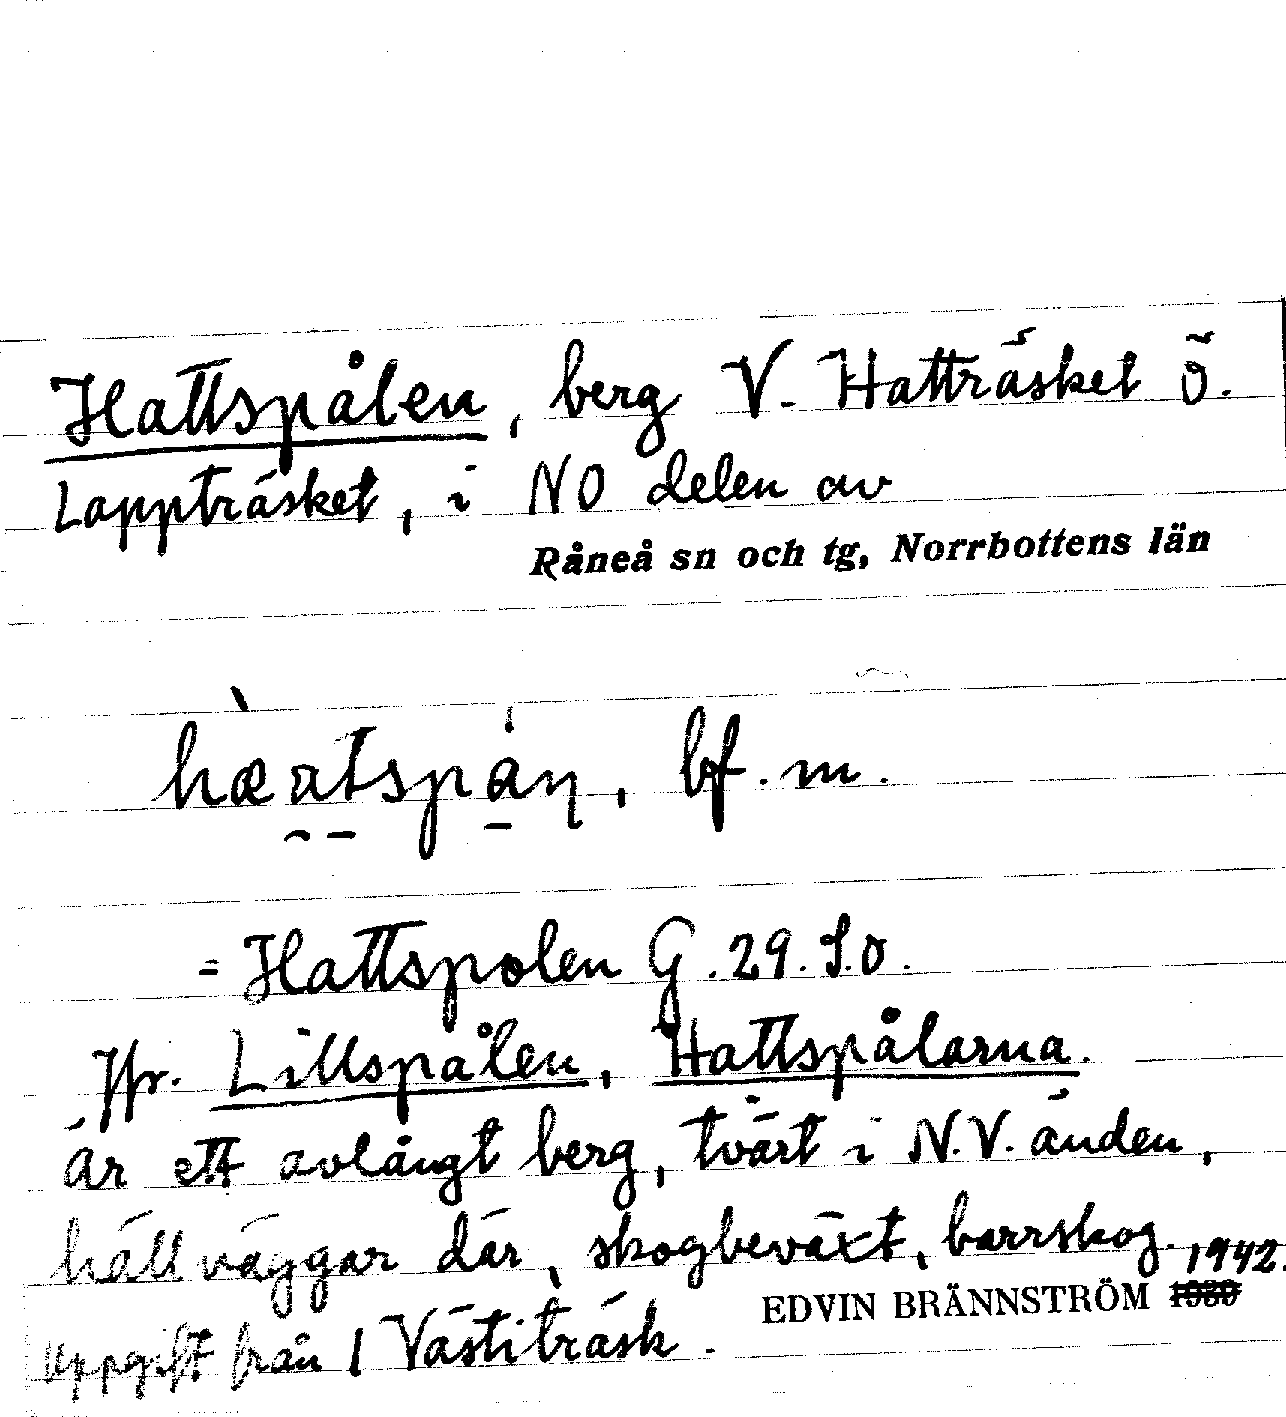 Hattspålen, berg V. Hatträsket ö.
Lappträsket, i NO delen av
Råneå sn och tg, Norrbottens län
bf. m.
= Hattspolen G. 29. S.O.
Jfr. Lillspålen, Hattspålarna.
Är ett avlångt berg, tvärt i N.V. änden,
hällväggar där, skogbeväxt, barrskog. 1942.
EDVIN BRÄNNSTRÖM 1930
Uppgift från 1 Västiträsk.